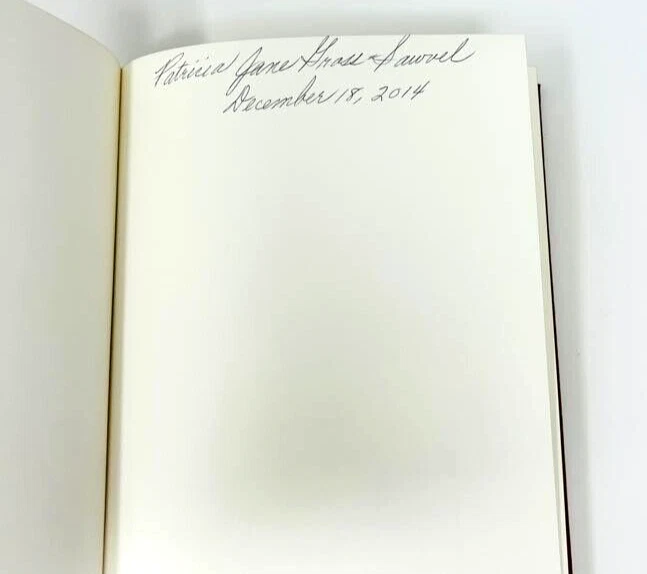 Patricia Jane Gross-Sawvel
December 18, 2014